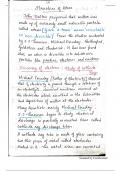 Structure of Atom
John Dalton proposed that matter was
made up of extremely small indivisible particle
called atoms
by J.J. Thomson, Michael Faraday,
Goldstein and Chadwick. It has been proved
that an atom is divisible &
particles like protons, electrons and neutrons.
Discovery of electron: Study of cathode
Rays
Michael Faraday (Father of Electricity) showed
that if electricity is passed through a solution of
an electrolyte, chemical reactions occurred at
the electrodes which resulted in the liberation
and deposition of matter at the electrode.
Many Scientists mainly Michael Faraday
J.J. Thomson began to study electrical
discharge in partially evacuated tubes called
Cathode ray discharge tubes.
A cathode ray tube is made of glass containing
two thin pieces of metal called electrodes
sealed in it. The metal wires are connected